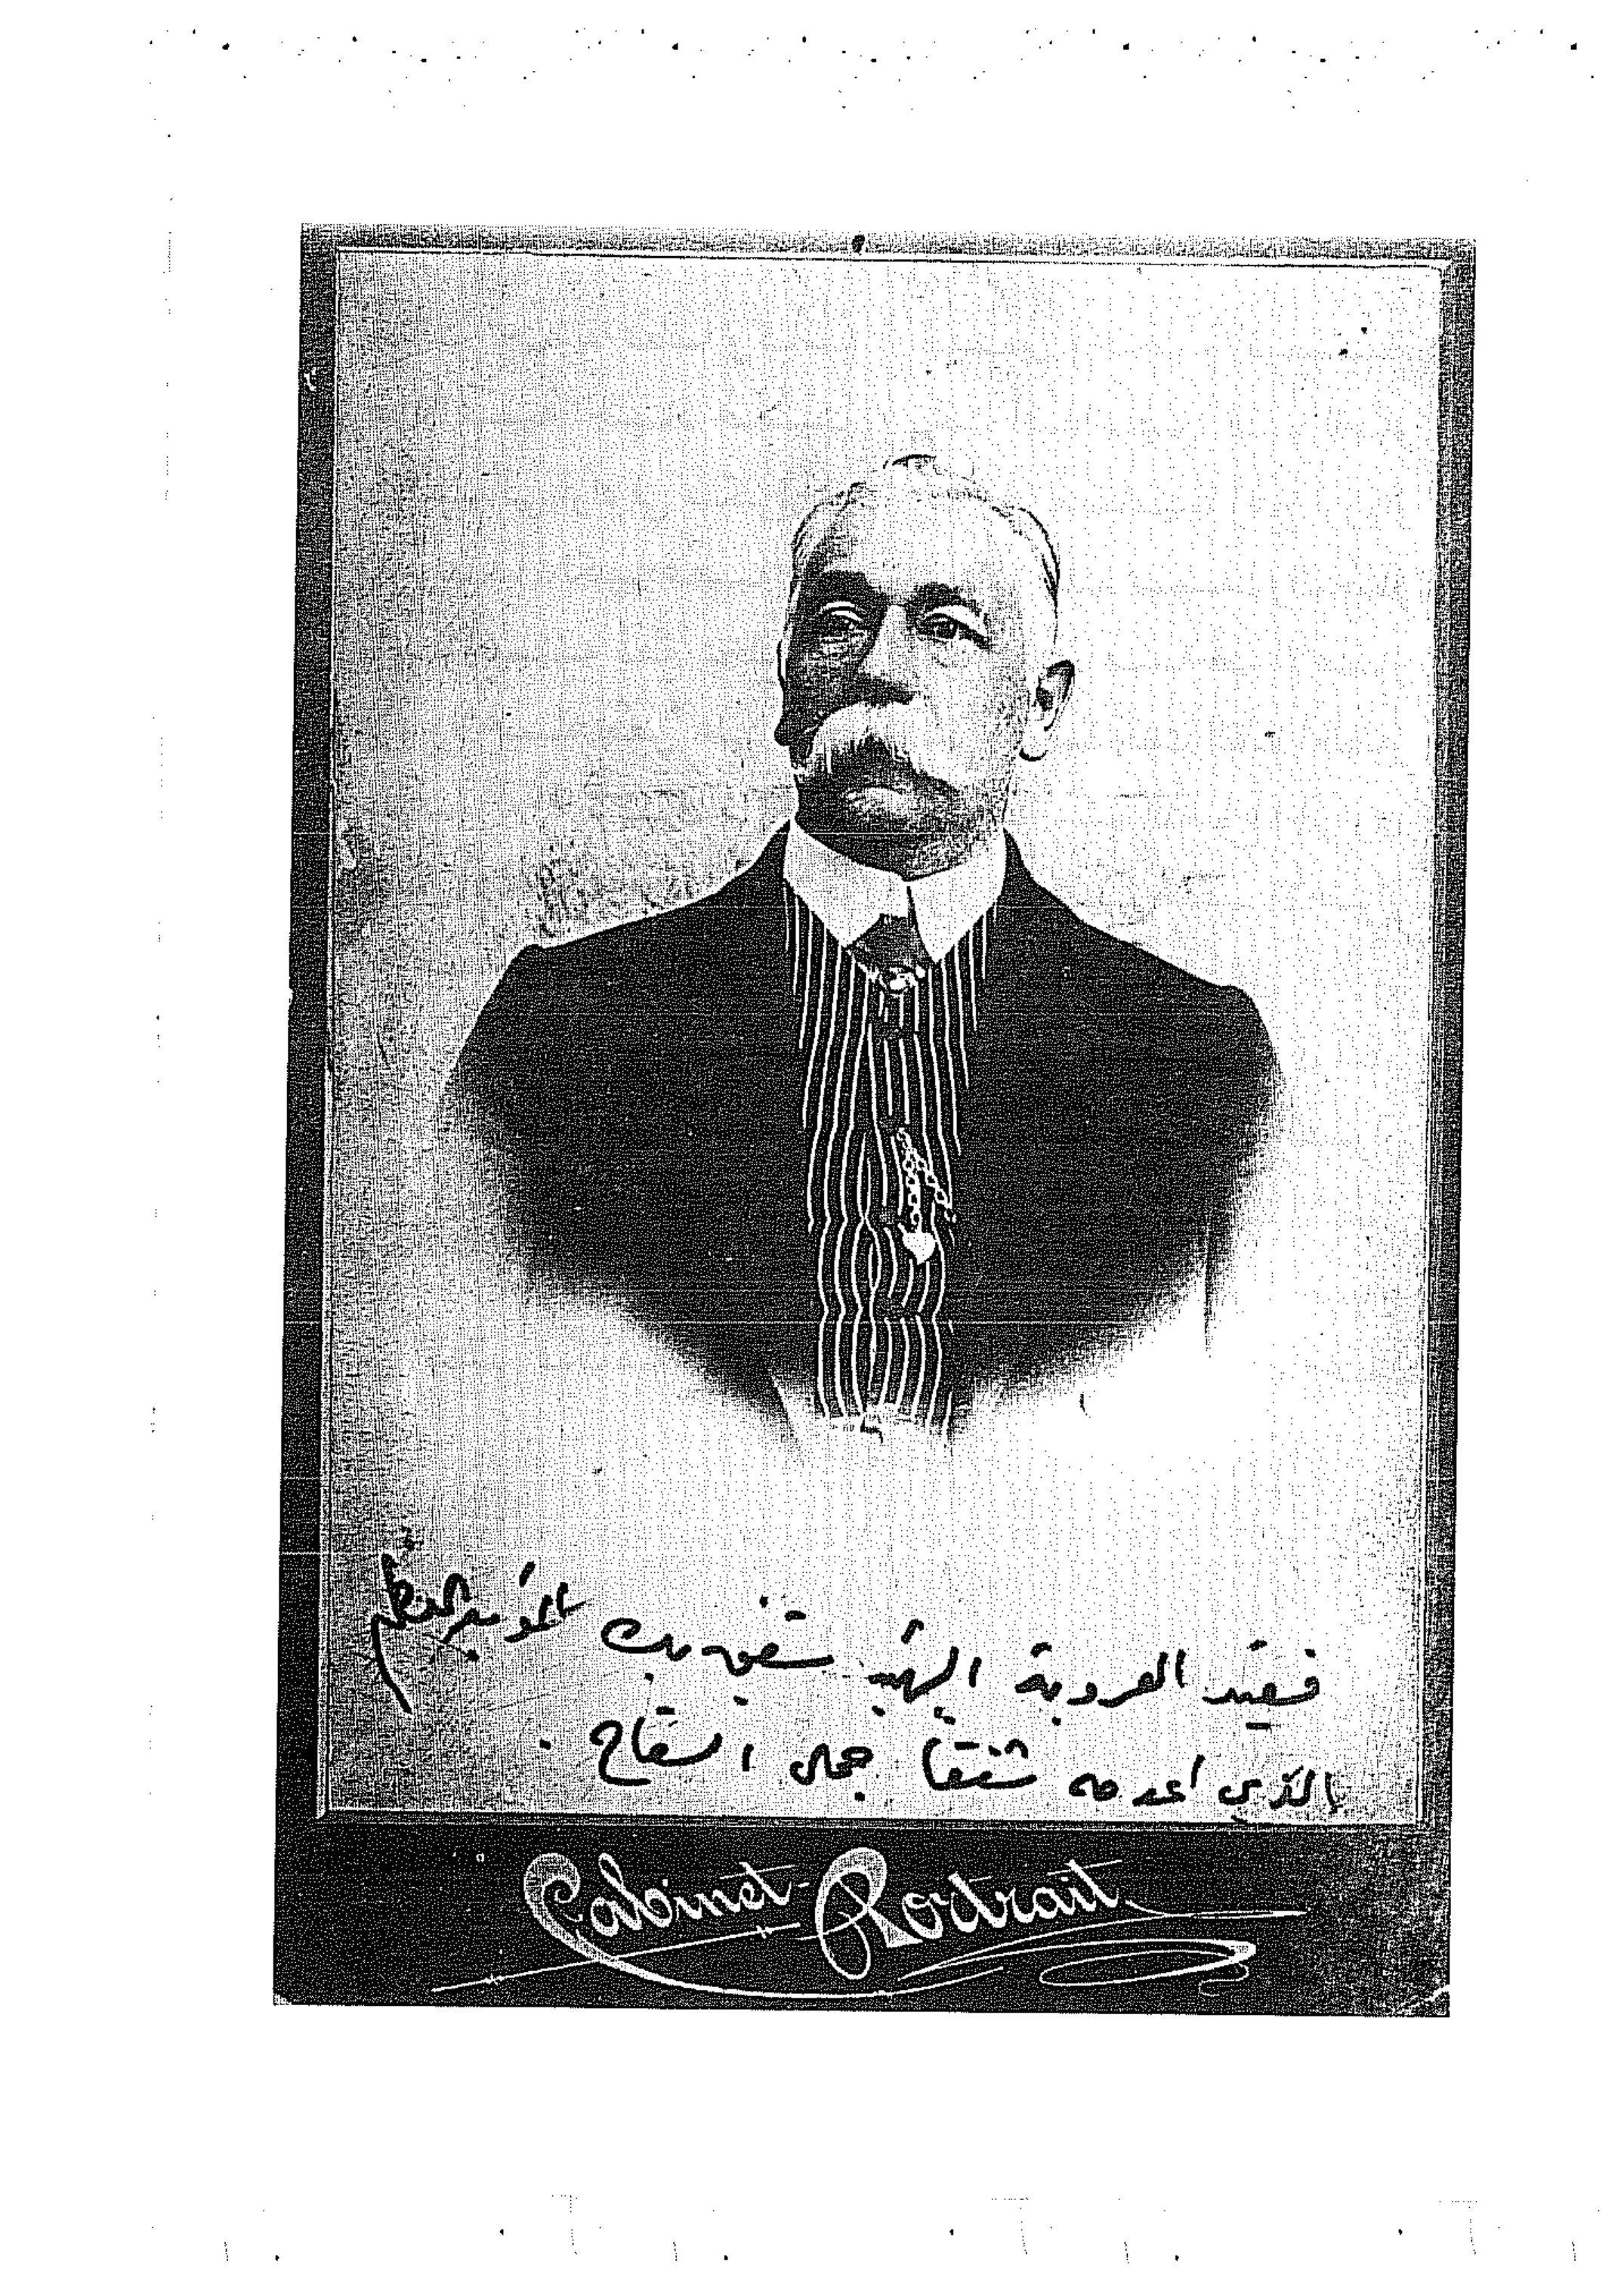 فقيد العروبة الشهيد شفيق بك المؤيد العظم
الذي أعدمه شنقاً جمال السفاح .
Cabinet-Portrait.